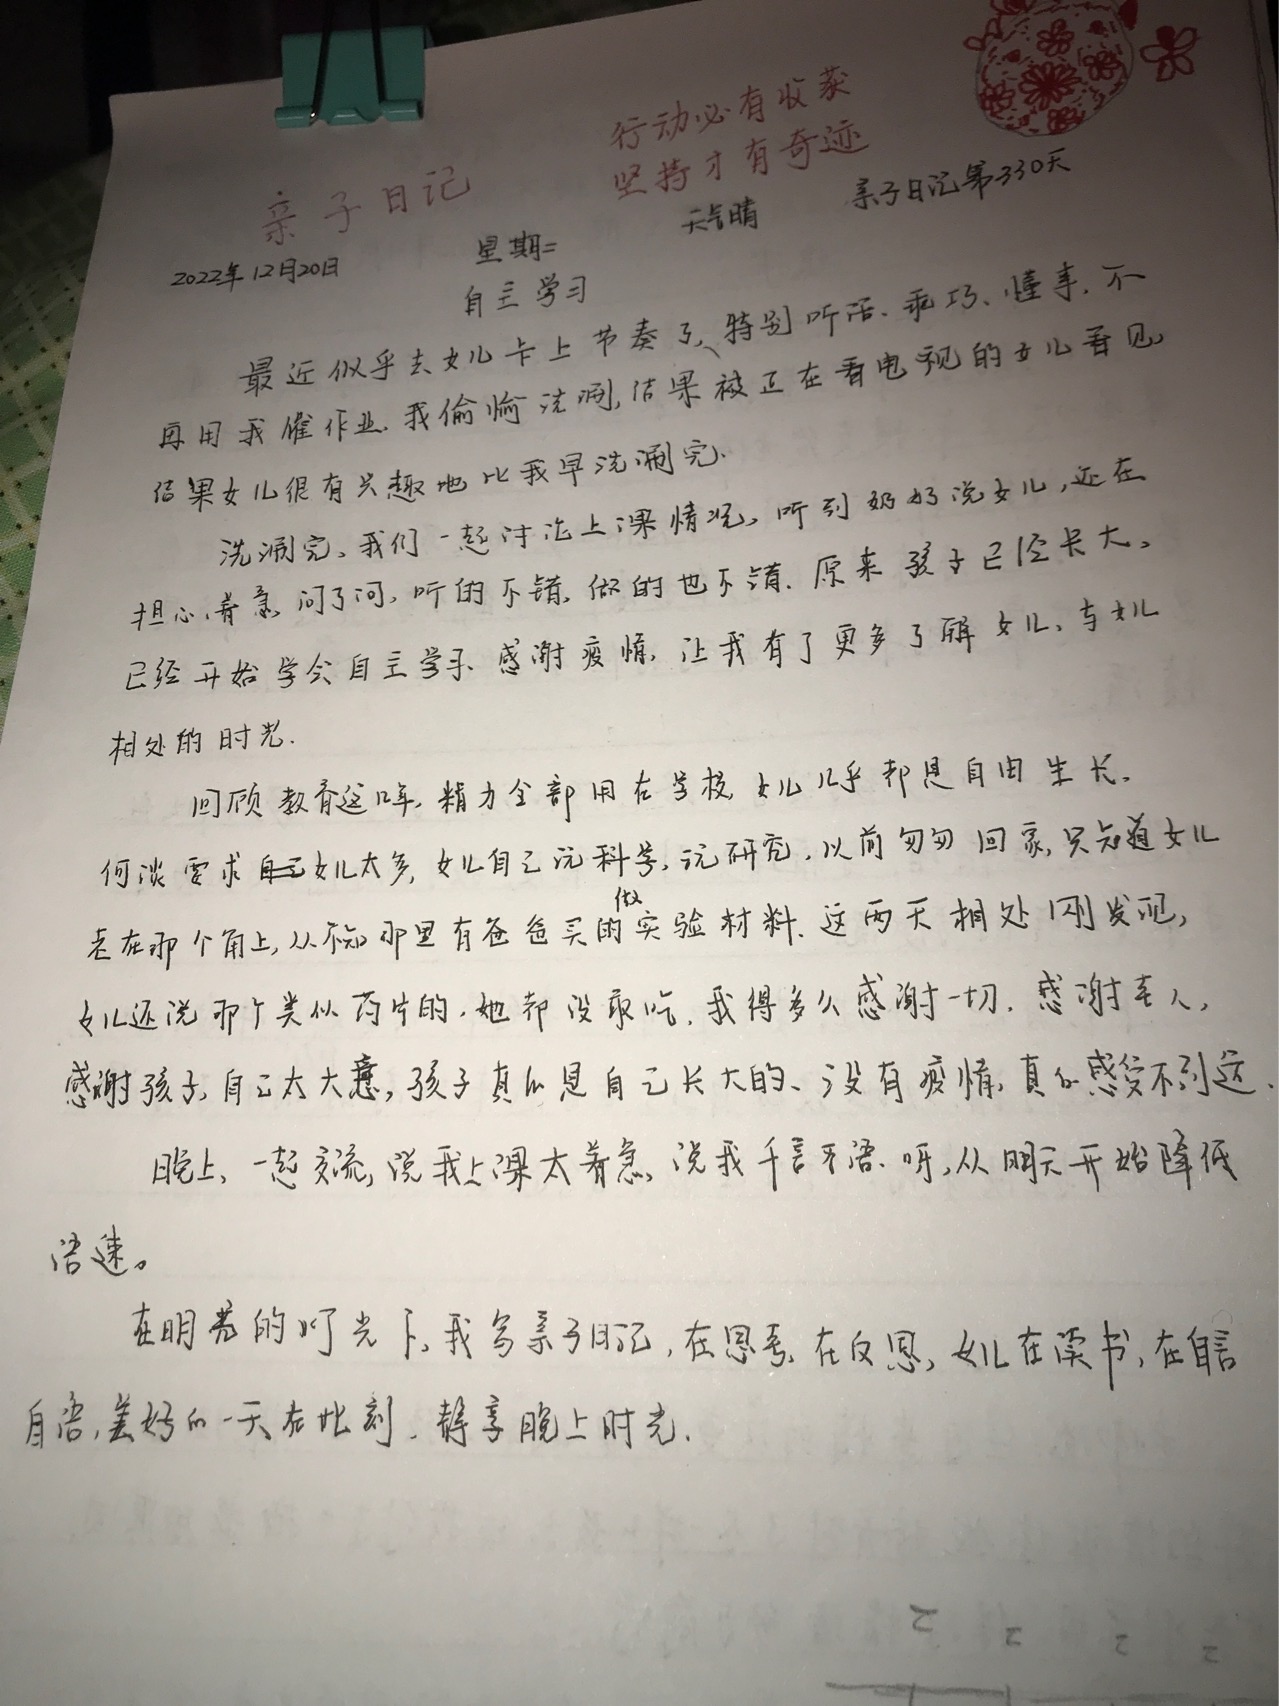 行动必有收获
坚持才有奇迹
亲子日记
亲子日记第330天
2022年12月20日 星期二 天气晴
自主学习
最近似乎去女儿卡上节奏了,特别听话、乖巧、懂事,不
再用我催作业.我偷偷洗涮,结果被正在看电视的女儿看见,
结果女儿很有兴趣地比我早洗涮完.
洗涮完,我们一起讨论上课情况,听到奶奶说女儿,还在
担心,着急,问了问,听的不错,做的也不错.原来孩子已经长大,
已经开始学会自主学习.感谢疫情,让我有了更多了解女儿,与女儿
相处的时光.
回顾教育这口年,精力全部用在学校,女儿几乎都是自由生长.
何谈要求女儿太多,女儿自己玩科学,玩研究,以前匆匆回家,只知道女儿
老在那个角上,从不知那里有爸爸买的做实验材料.这两天相处刚发现,
女儿还说那个类似药片的,她都没敢吃.我得多么感谢一切.感谢老人,
感谢孩子,自己太大意,孩子真的是自己长大的、没有疫情,真的感受不到这.
晚上,一起交流,说我上课太着急,说我千言万语.呀,从明天开始降低
语速。
在明亮的灯光下,我写亲子日记,在思考,在反思,女儿在读书,在自言
自语,美好的一天在此刻.静享晚上时光.
2 2 2 2